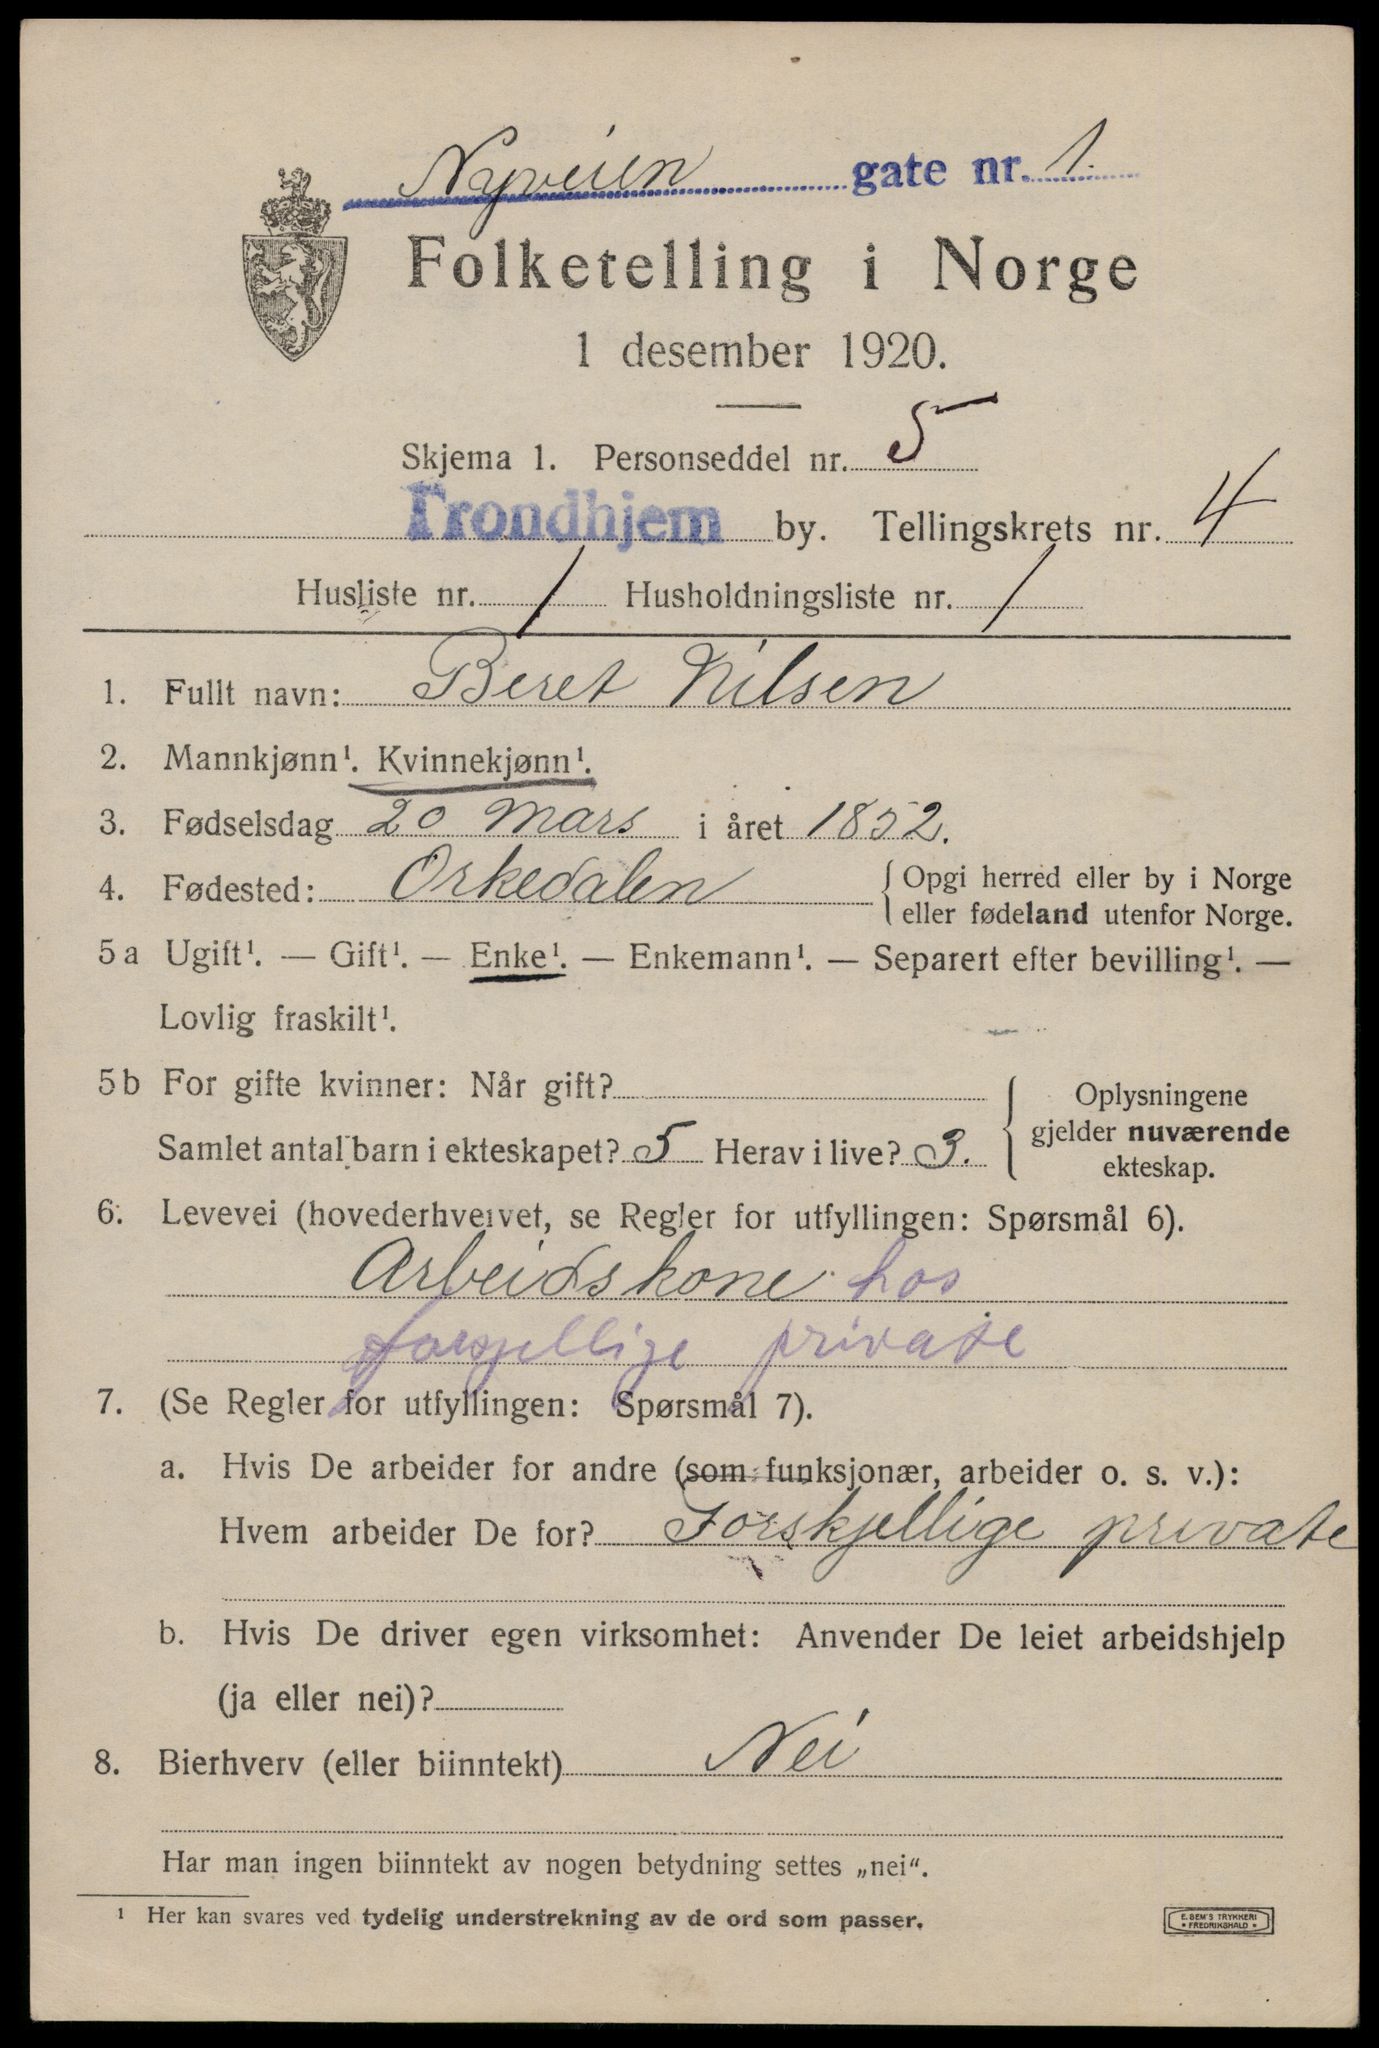 Nyveien gate nr. 1.
Folketelling i Norge
1 desember 1920.
Skjema 1. Personseddel nr. 5
Trondhjem by. Tellingskrets nr. 4
Husliste nr. 1 Husholdningsliste nr. 1
1. Fullt navn: Beret Nilsen
2. Mannkjønn¹. Kvinnekjønn¹.
3. Fødselsdag 20 Mars i året 1852.
4. Fødested: Orkedalen { Opgi herred eller by i Norge
eller fødeland utenfor Norge.
5a Ugift¹. — Gift¹. — Enke¹. — Enkemann¹. — Separert efter bevilling¹. —
Lovlig fraskilt¹.
5b For gifte kvinner: Når gift?
Samlet antal barn i ekteskapet? 5 Herav i live? 3.
{ Oplysningene
gjelder nuværende
ekteskap.
6. Levevei (hovederhvervet, se Regler for utfyllingen: Spørsmål 6).
Arbeidskone hos
forsjellige private
7. (Se Regler for utfyllingen: Spørsmål 7).
a. Hvis De arbeider for andre (som funksjonær, arbeider o. s. v.):
Hvem arbeider De for? Forskjellige private
b. Hvis De driver egen virksomhet: Anvender De leiet arbeidshjelp
(ja eller nei)?
8. Bierhverv (eller biinntekt) Nei
Har man ingen biinntekt av nogen betydning settes „nei“.
¹ Her kan svares ved tydelig understrekning av de ord som passer.
E. SEM'S TRYKKERI
• FREDRIKSHALD •